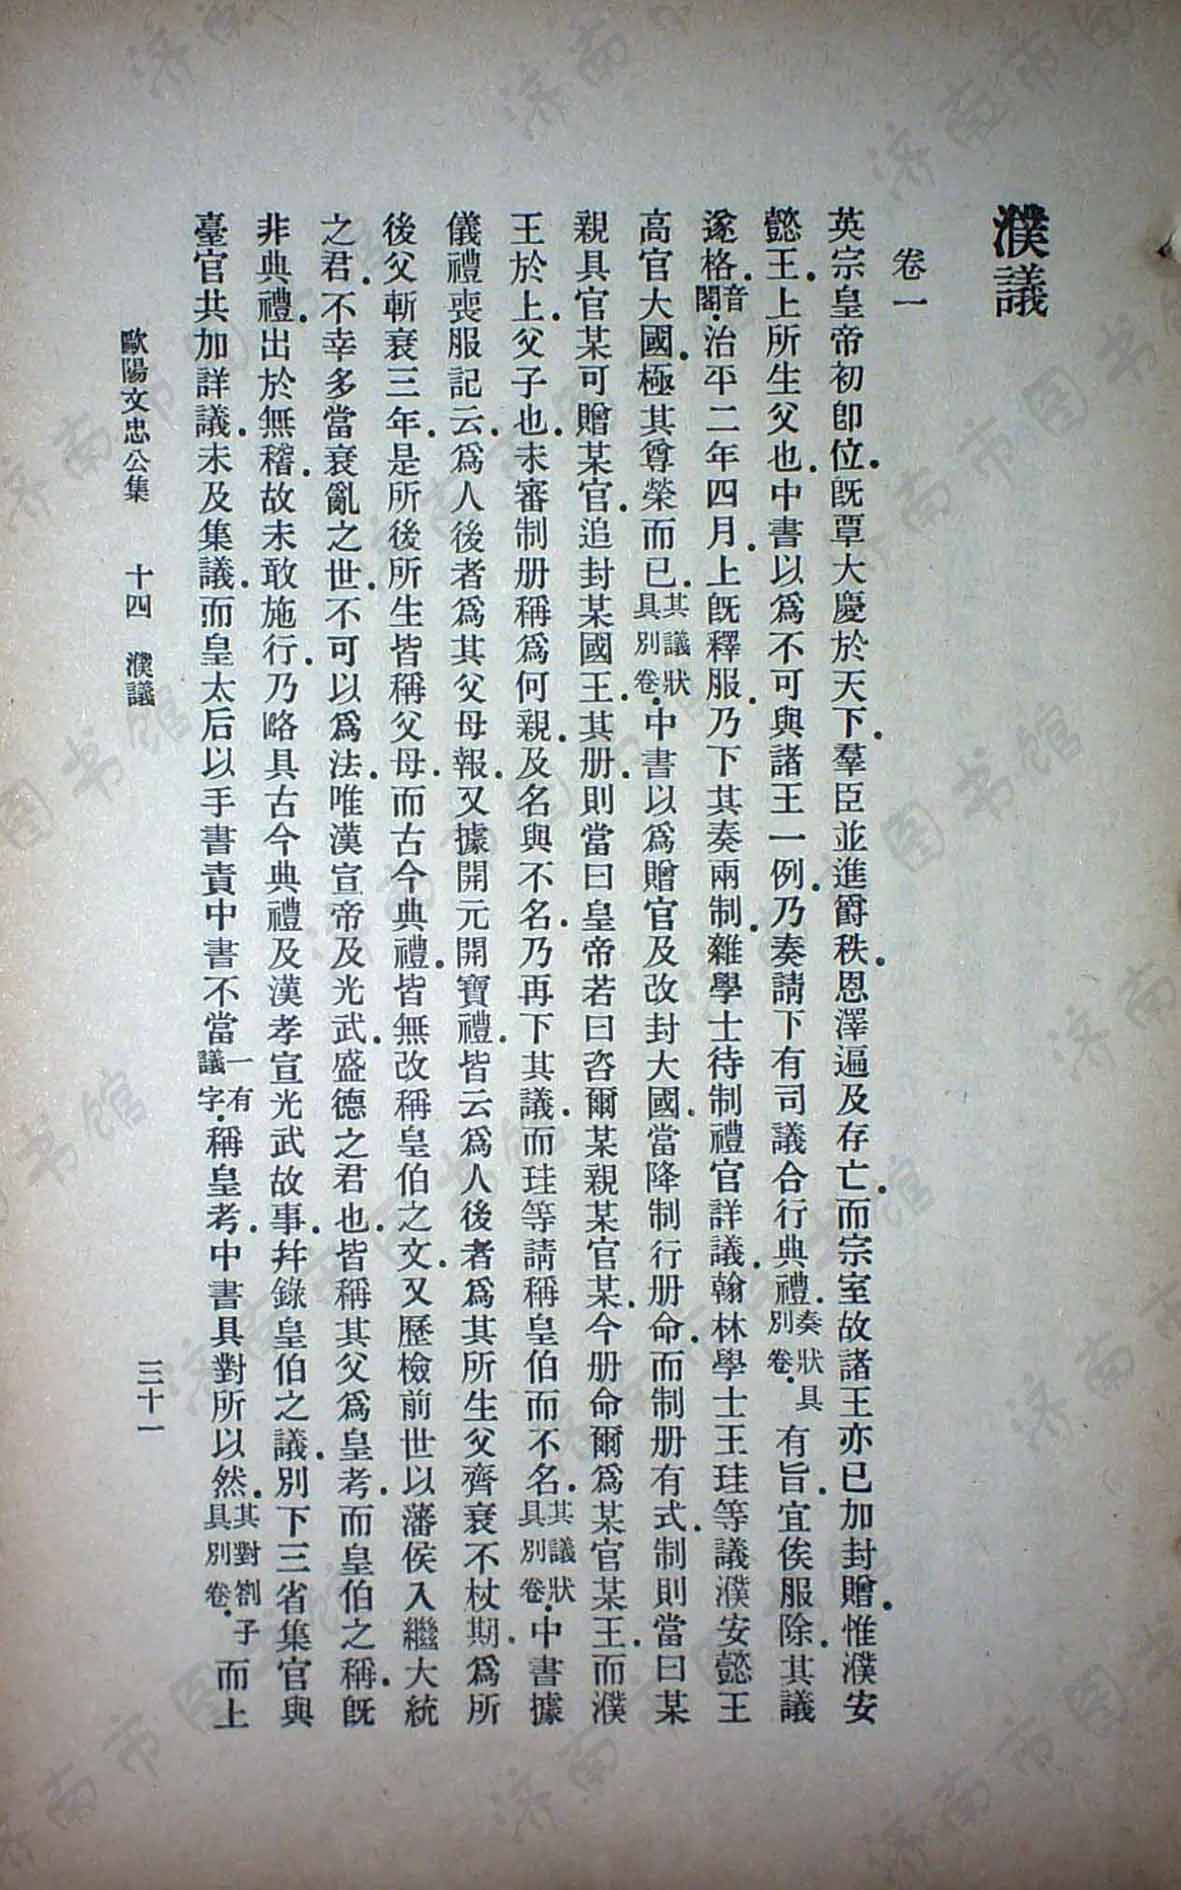 濮議
卷一
英宗皇帝初卽位．旣覃大慶於天下．羣臣並進爵秩．恩澤遍及存亡．而宗室故諸王亦已加封贈．惟濮安
懿王．上所生父也．中書以爲不可與諸王一例．乃奏請下有司議合行典禮．奏狀具別卷．有旨．宜俟服除．其議
遂格．音閣．治平二年四月．上旣釋服．乃下其奏兩制．雜學士待制禮官詳議．翰林學士王珪等議濮安懿王
高官大國．極其尊榮而已．其議狀具別卷．中書以爲贈官及改封大國．當降制行册命．而制册有式．制則當曰某
親具官某可贈某官．追封某國王．其册．則當曰皇帝若曰咨爾某親某官某．今册命爾爲某官某王．而濮
王於上．父子也．未審制册稱爲何親．及名與不名．乃再下其議．而珪等請稱皇伯而不名．其議狀具別卷．中書據
儀禮喪服記云．爲人後者爲其父母報．又據開元開寶禮．皆云爲人後者爲其所生父齊衰不杖期．爲所
後父斬衰三年．是所後所生皆稱父母．而古今典禮．皆無改稱皇伯之文．又歷檢前世以藩侯入繼大統
之君．不幸多當衰亂之世．不可以爲法．唯漢宣帝及光武．盛德之君也．皆稱其父爲皇考．而皇伯之稱．旣
非典禮．出於無稽．故未敢施行．乃略具古今典禮及漢孝宣光武故事．幷錄皇伯之議．別下三省集官與
臺官共加詳議．未及集議．而皇太后以手書責中書不當一有議字．稱皇考．中書具對所以然．其對劄子具別卷．而上
歐陽文忠公集　十四　濮議　三十一
济南市图书馆